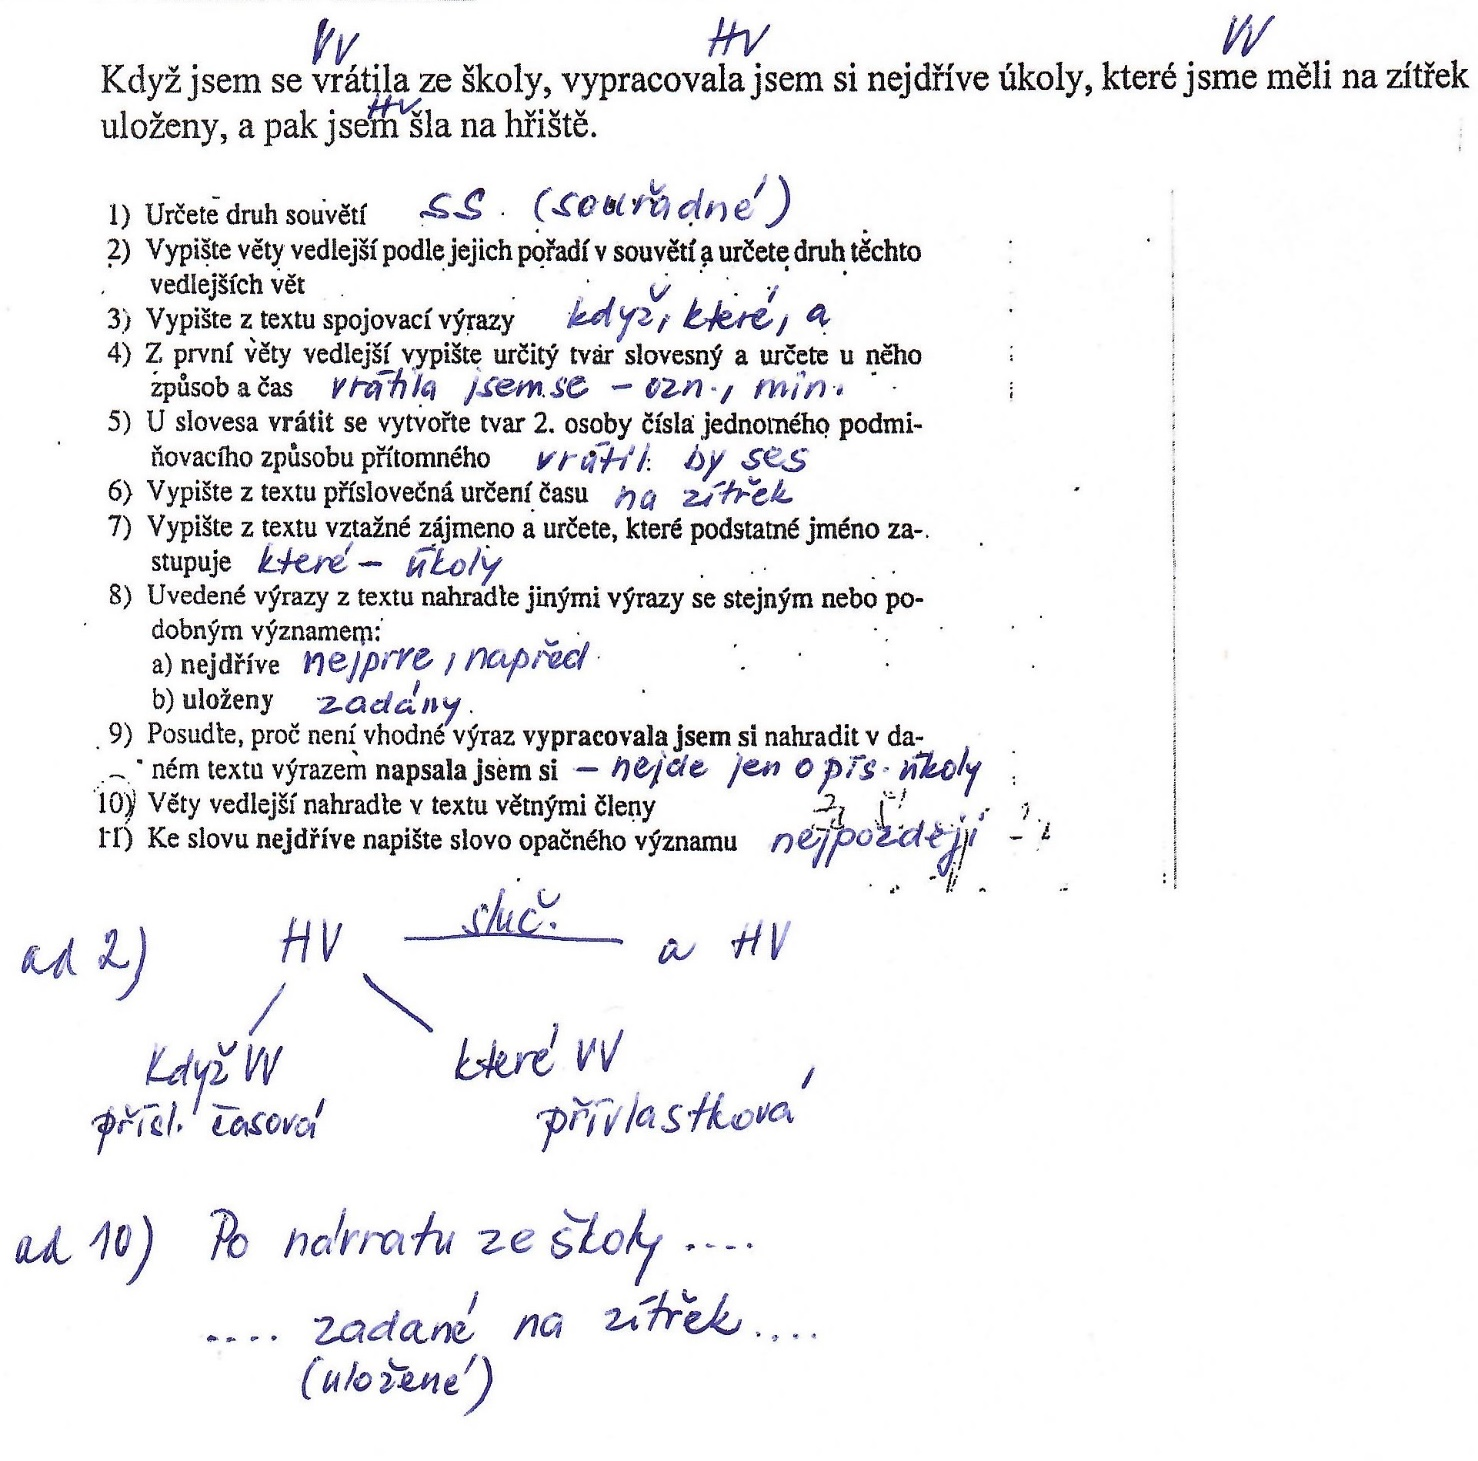 VV HV VV
Když jsem se vrátila ze školy, vypracovala jsem si nejdříve úkoly, které jsme měli na zítřek
HV
uloženy, a pak jsem šla na hřiště.
1) Určete druh souvětí SS. (souřadné)
2) Vypište věty vedlejší podle jejich pořadí v souvětí a určete druh těchto
vedlejších vět
3) Vypište z textu spojovací výrazy když, které, a
4) Z první věty vedlejší vypište určitý tvar slovesný a určete u něho
způsob a čas vrátila jsem se – ozn., min.
5) U slovesa vrátit se vytvořte tvar 2. osoby čísla jednotného podmi-
ňovacího způsobu přítomného vrátil by ses
6) Vypište z textu příslovečná určení času na zítřek
7) Vypište z textu vztažné zájmeno a určete, které podstatné jméno za-
stupuje které – úkoly
8) Uvedené výrazy z textu nahraďte jinými výrazy se stejným nebo po-
dobným významem:
a) nejdříve nejprve, napřed
b) uloženy zadány.
9) Posuďte, proč není vhodné výraz vypracovala jsem si nahradit v da-
ném textu výrazem napsala jsem si – nejde jen o pís. úkoly
10) Věty vedlejší nahraďte v textu větnými členy
11) Ke slovu nejdříve napište slovo opačného významu nejpozději
ad 2) HV sluč. a HV
Když VV které VV
přísl. časová přívlastková
ad 10) Po návratu ze školy ....
.... zadané na zítřek ....
(uložené)